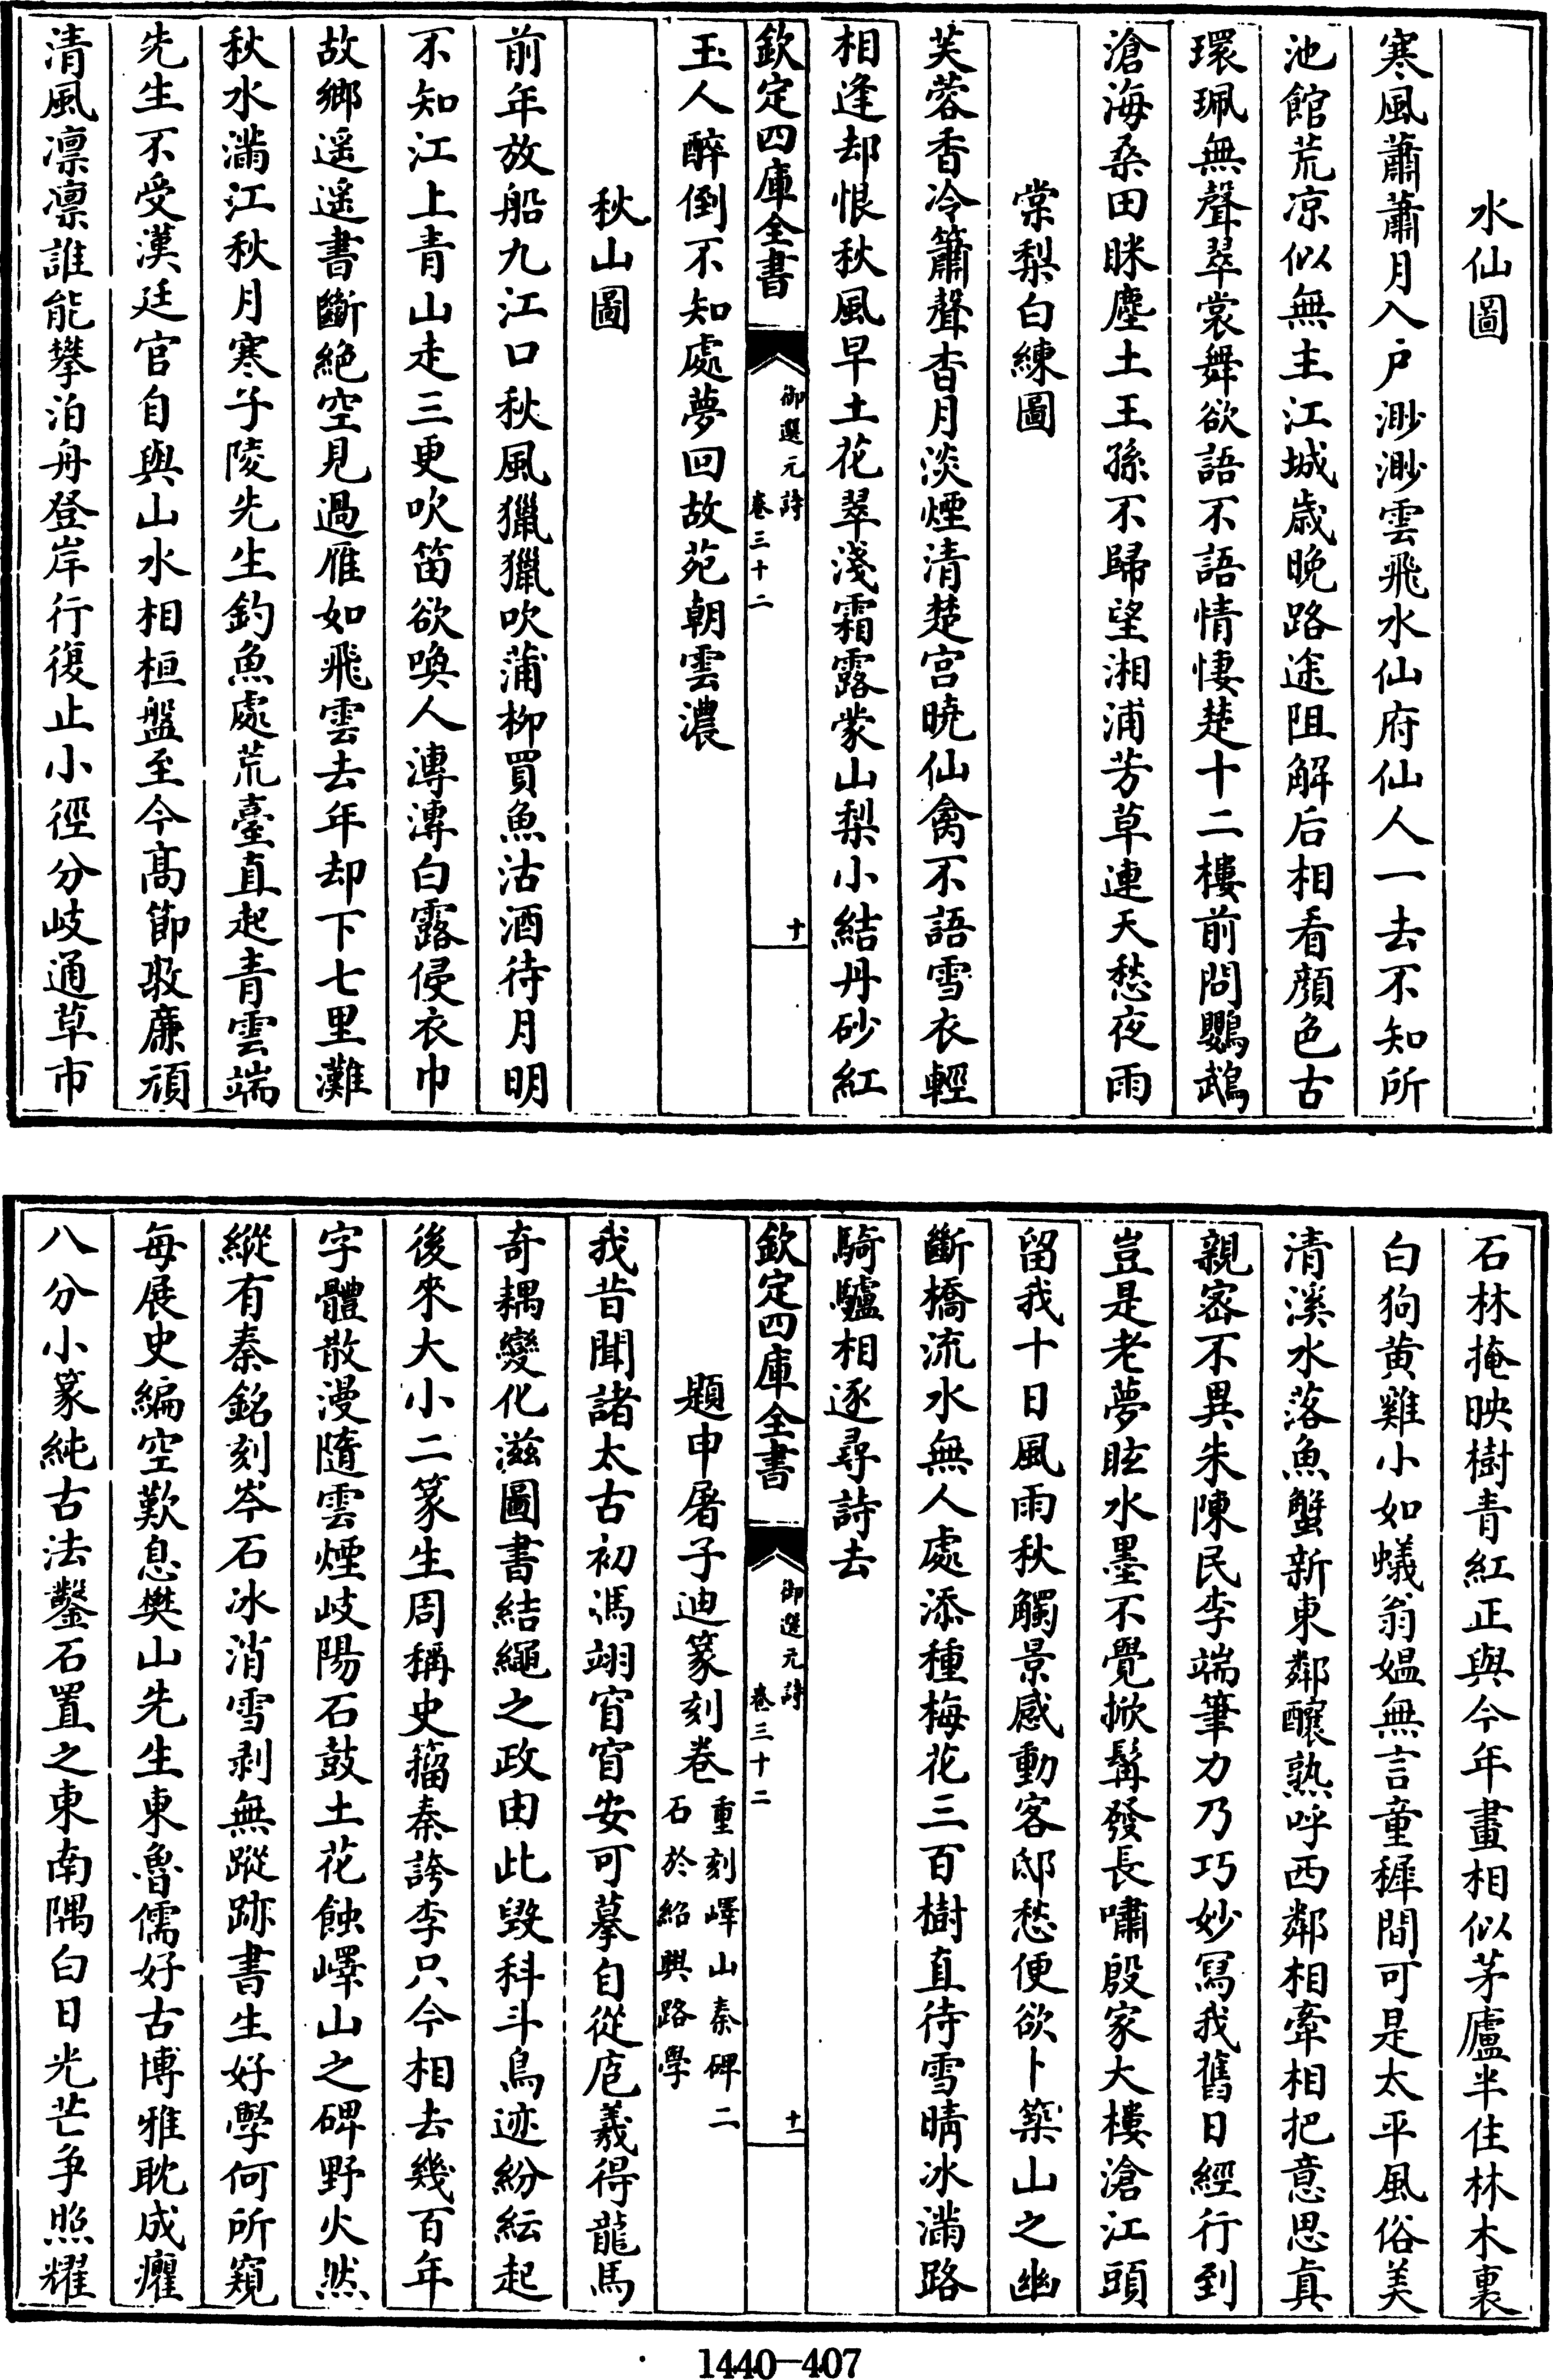 水仙圖
寒風蕭蕭月入户渺渺雲飛水仙府仙人一去不知所
池館荒凉似無主江城歳晚路途阻解后相看顔色古
環珮無聲翠裳舞欲語不語情悽楚十二樓前問鸚鵡
滄海桑田眯塵土王孫不歸望湘浦芳草連天愁夜雨
棠梨白練圖
芙蓉香冷簫聲杳月淡煙清楚宫曉仙禽不語雪衣輕
相逢却恨秋風早土花翠淺霜露蒙山梨小結丹砂紅
欽定四庫全書
御選元詩
卷三十二
十
玉人醉倒不知處夢回故苑朝雲濃
秋山圖
前年放船九江口秋風獵獵吹蒲柳買魚沽酒待月明
不知江上青山走三更吹笛欲喚人漙漙白露侵衣巾
故鄉遥遥書斷絶空見過雁如飛雲去年却下七里灘
秋水滿江秋月寒子陵先生釣魚處荒臺直起青雲端
先生不受漢廷官自與山水相桓盤至今髙節敦㢘頑
清風凛凛誰能攀泊舟登岸行復止小徑分岐通草市
石林掩映樹青紅正與今年畫相似茅廬半住林木裏
白狗黄雞小如蟻翁媪無言童穉閒可是太平風俗美
清溪水落魚蟹新東鄰釀熟呼西鄰相牽相把意思真
親宻不異朱陳民李端筆力乃巧妙冩我舊日經行到
豈是老夢眩水墨不覺掀髯發長嘯殷家大樓滄江頭
留我十日風雨秋觸景感動客邸愁便欲卜築山之幽
斷橋流水無人處添種梅花三百樹直待雪晴冰滿路
騎驢相逐尋詩去
欽定四庫全書
御選元詩
卷三十二
十一
題申屠子迪篆刻卷重刻嶧山秦碑二
石於紹興路學
我昔聞諸太古初馮翊窅窅安可摹自從庖羲得龍馬
奇耦變化滋圖書結繩之政由此毁科斗鳥迹紛紜起
後來大小二篆生周稱史籀秦誇李只今相去幾百年
字體散漫隨雲煙岐陽石鼓土花蝕嶧山之碑野火然
縱有秦銘刻岑石冰消雪剥無蹤跡書生好學何所窺
每展史編空歎息樊山先生東魯儒好古博雅耽成癯
八分小篆純古法鑿石置之東南隅白日光芒争照耀
1440—407